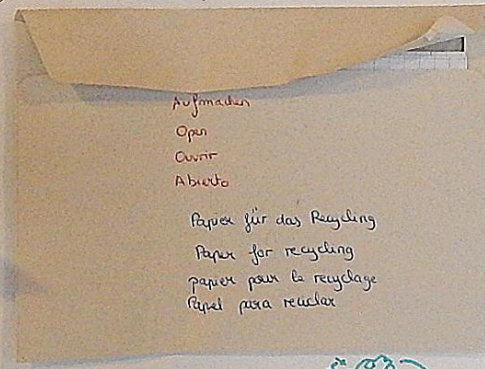 Aufmachen
Open
Ouvrir
Abierto
Papier für das Recycling
Paper for recycling
papier pour le recyclage
Papel para reciclar